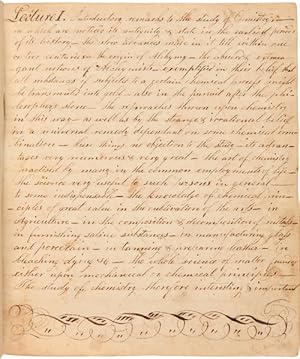 Lecture I. Introductory remarks to the study of Chemistry
in which are notices its antiquity & state in the earliest periods
of its history — the slow advances made in it till within one
or two centuries — the origin of Alchymy — the absurd & extrava
gant notions of Alchymists exemplified in their belief that
all substances if subjected to a certain chemical process might
be transmuted into gold — also in the pursuit after the phi
losophers stone — the reproaches thrown upon chemistry
in this way as well as by the strange & irrational belief
in a universal remedy dependant on some chemical com
bination — these things no objection to the study — its advan
tages very numerous & very great — the art of chemistry
practised by many in the common employments of life —
the science very useful to such persons in general —
to some indispensable — the knowledge of chemical prin
ciples of great value in the cultivation of the arts —
Agriculture — in the composition & decomposition of metals
in furnishing saline substances — in manufacturing glass
and porcelain — in tanning & preparing leather — in
bleaching dying &c — the whole science of matter founded
either upon mechanical or chemical principles —
The study of chemistry therefore interesting & important